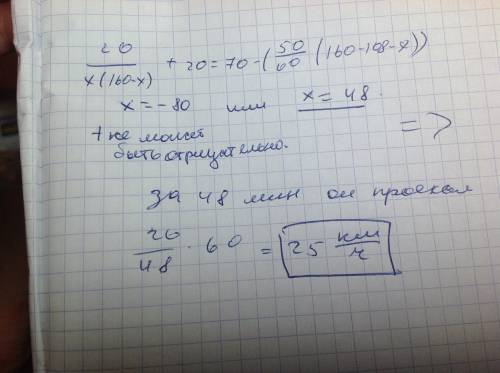 20/x(160-x) + 20 = 70 - (50/60 (160-108-x))
x = -80 или x = 48.
t не может
быть отрицательно.
=>
за 48 мин он проехал
20/48 · 60 = 25 км/ч